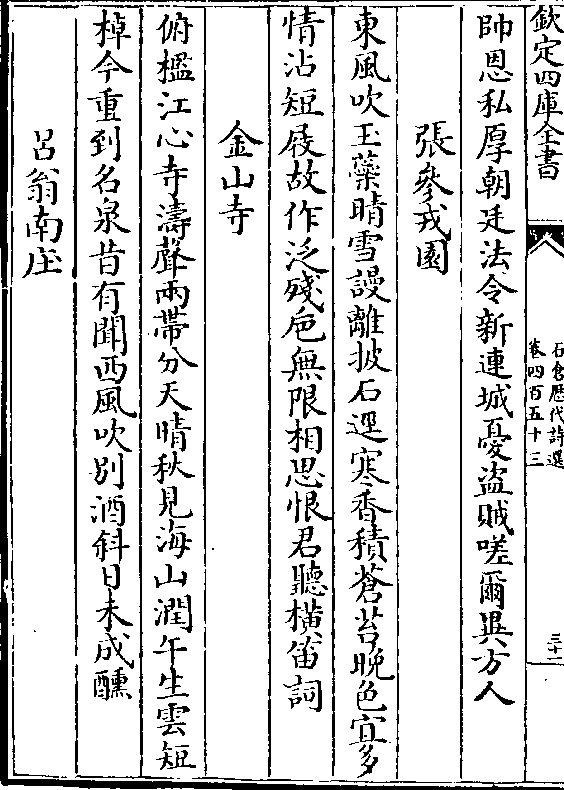 欽定四庫全書
石倉歴代詩選
卷四百五十三
三十一
帥恩私厚朝廷法令新連城憂盜賊嗟爾異方人
張參戎園
東風吹玉蘂晴雪謾離披石逕寒香積蒼苔晚色宜多
情沾短屐故作泛殘巵無限相思恨君聽橫笛詞
金山寺
俯檻江心寺濤聲兩帶分天晴秋見海山潤午生雲短
棹今重到名泉昔有聞西風吹别酒斜日未成醺
呂翁南庄